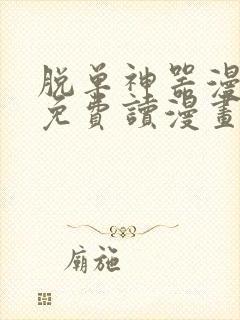 脱单神器漫
免費讀漫畫
廟施